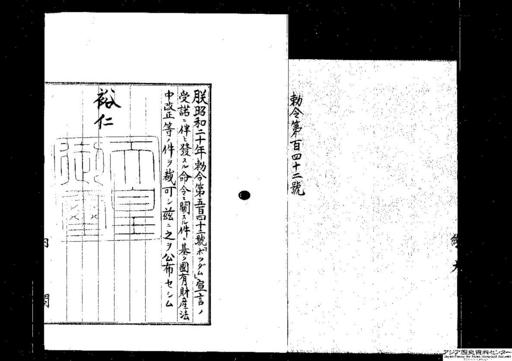 勅令第百四十二號
朕昭和二十年勅令第五百四十二號「ポツダム」宣言ノ
受諾ニ伴ヒ發スル命令ニ關スル件ニ基ク國有財産法
中改正等ノ件ヲ裁可シ茲ニ之ヲ公布セシム
裕仁
天皇
御璽
内
閣
アジア歴史資料センター